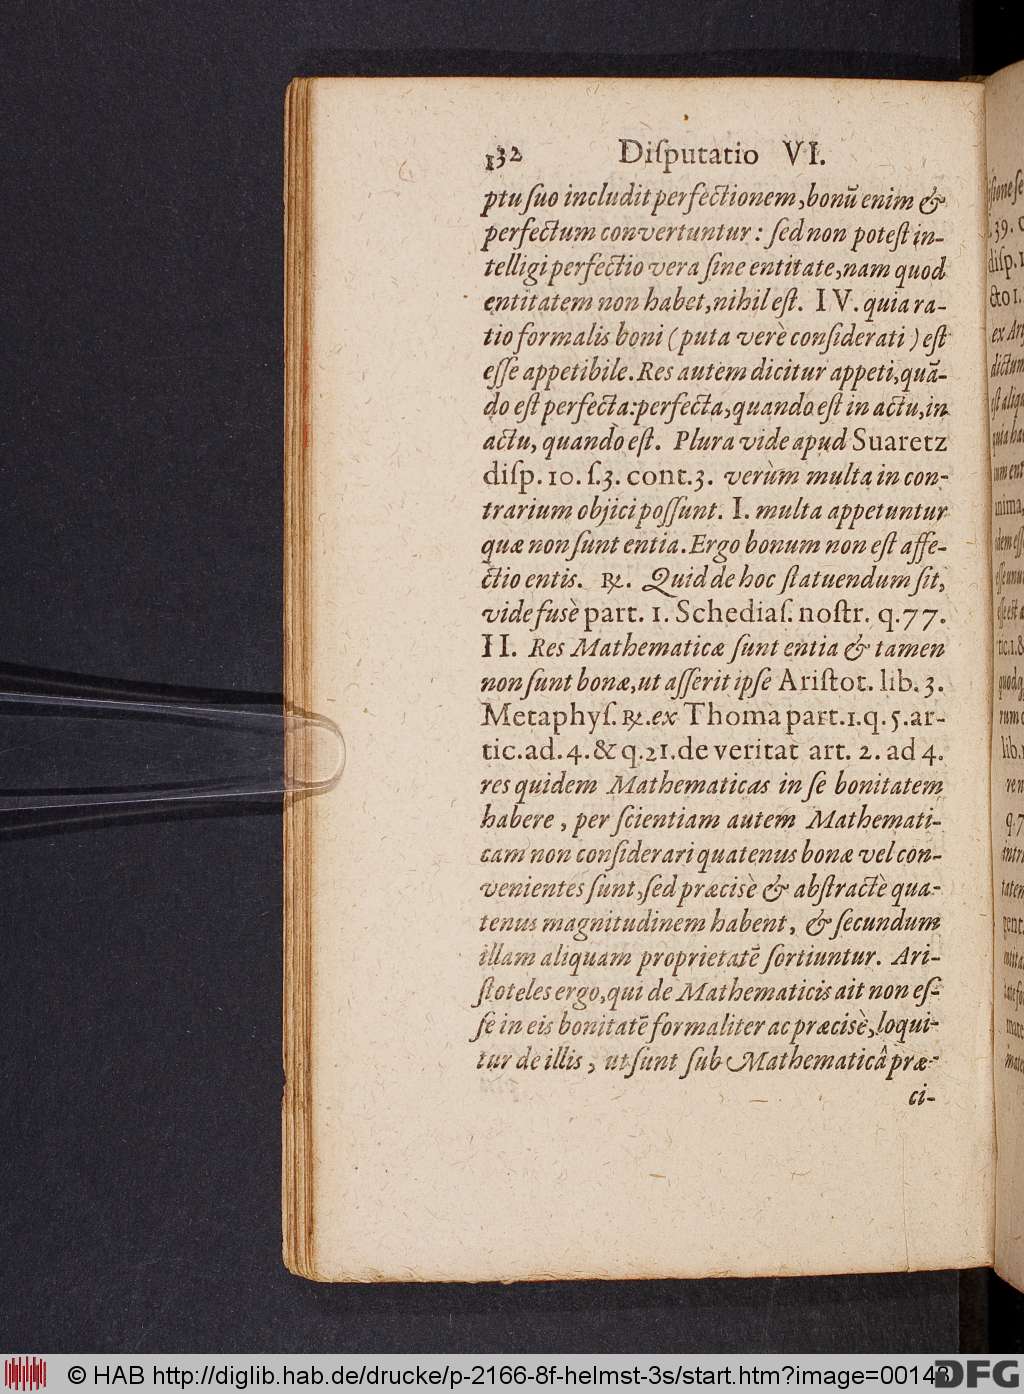 132 Diſputatio VI.
ptu ſuo includit perfectionem, bonū enim &
perfectum convertuntur: ſed non poteſt in-
telligi perfectio vera ſine entitate, nam quod
entitatem non habet, nihil eſt. IV. quia ra-
tio formalis boni (puta verè conſiderati) eſt
eſſe appetibile. Res autem dicitur appeti, quā-
do eſt perfecta: perfecta, quando eſt in actu, in
actu, quando eſt. Plura vide apud Suaretz
diſp. 10. ſ.3. cont.3. verùm multa in con-
trarium objici poſſunt. I. multa appetuntur
quæ non ſunt entia. Ergo bonum non eſt affe-
ctio entis. ℞. Quid de hoc ſtatuendum ſit,
vide fusè part. 1. Schediaſ. noſtr. q.77.
II. Res Mathematicæ ſunt entia & tamen
non ſunt bonæ, ut aſſerit ipſe Ariſtot. lib. 3.
Metaphyſ. ℞. ex Thoma part.1.q.5.ar-
tic.ad.4.& q.21.de veritat art. 2. ad 4.
res quidem Mathematicas in ſe bonitatem
habere, per ſcientiam autem Mathemati-
cam non conſiderari quatenus bonæ vel con-
venientes ſunt, ſed præcisè & abſtractè qua-
tenus magnitudinem habent, & ſecundum
illam aliquam proprietatē ſortiuntur. Ari-
ſtoteles ergo, qui de Mathematicis ait non eſ-
ſe in eis bonitatē formaliter ac præcisè, loqui-
tur de illis, ut ſunt ſub Mathematicâ præ-
ci-
© HAB http://diglib.hab.de/drucke/p-2166-8f-helmst-3s/start.htm?image=00148
DFG